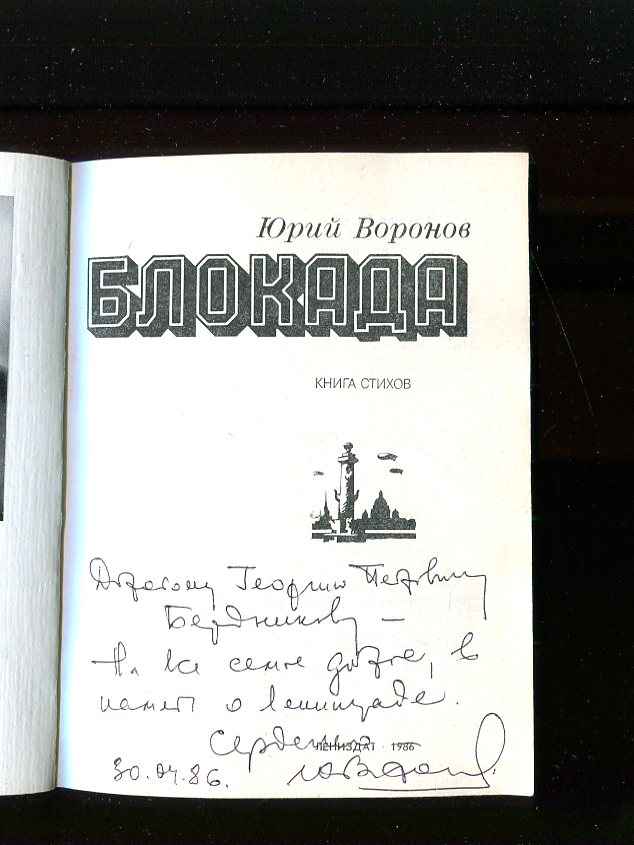 Юрий Воронов
БЛОКАДА
КНИГА СТИХОВ
Дорогому Георгию Петровичу
Бердникову —
На все самое доброе, в
память о Ленинграде.
Сердечно
ЛЕНИЗДАТ · 1986
30.04.86.